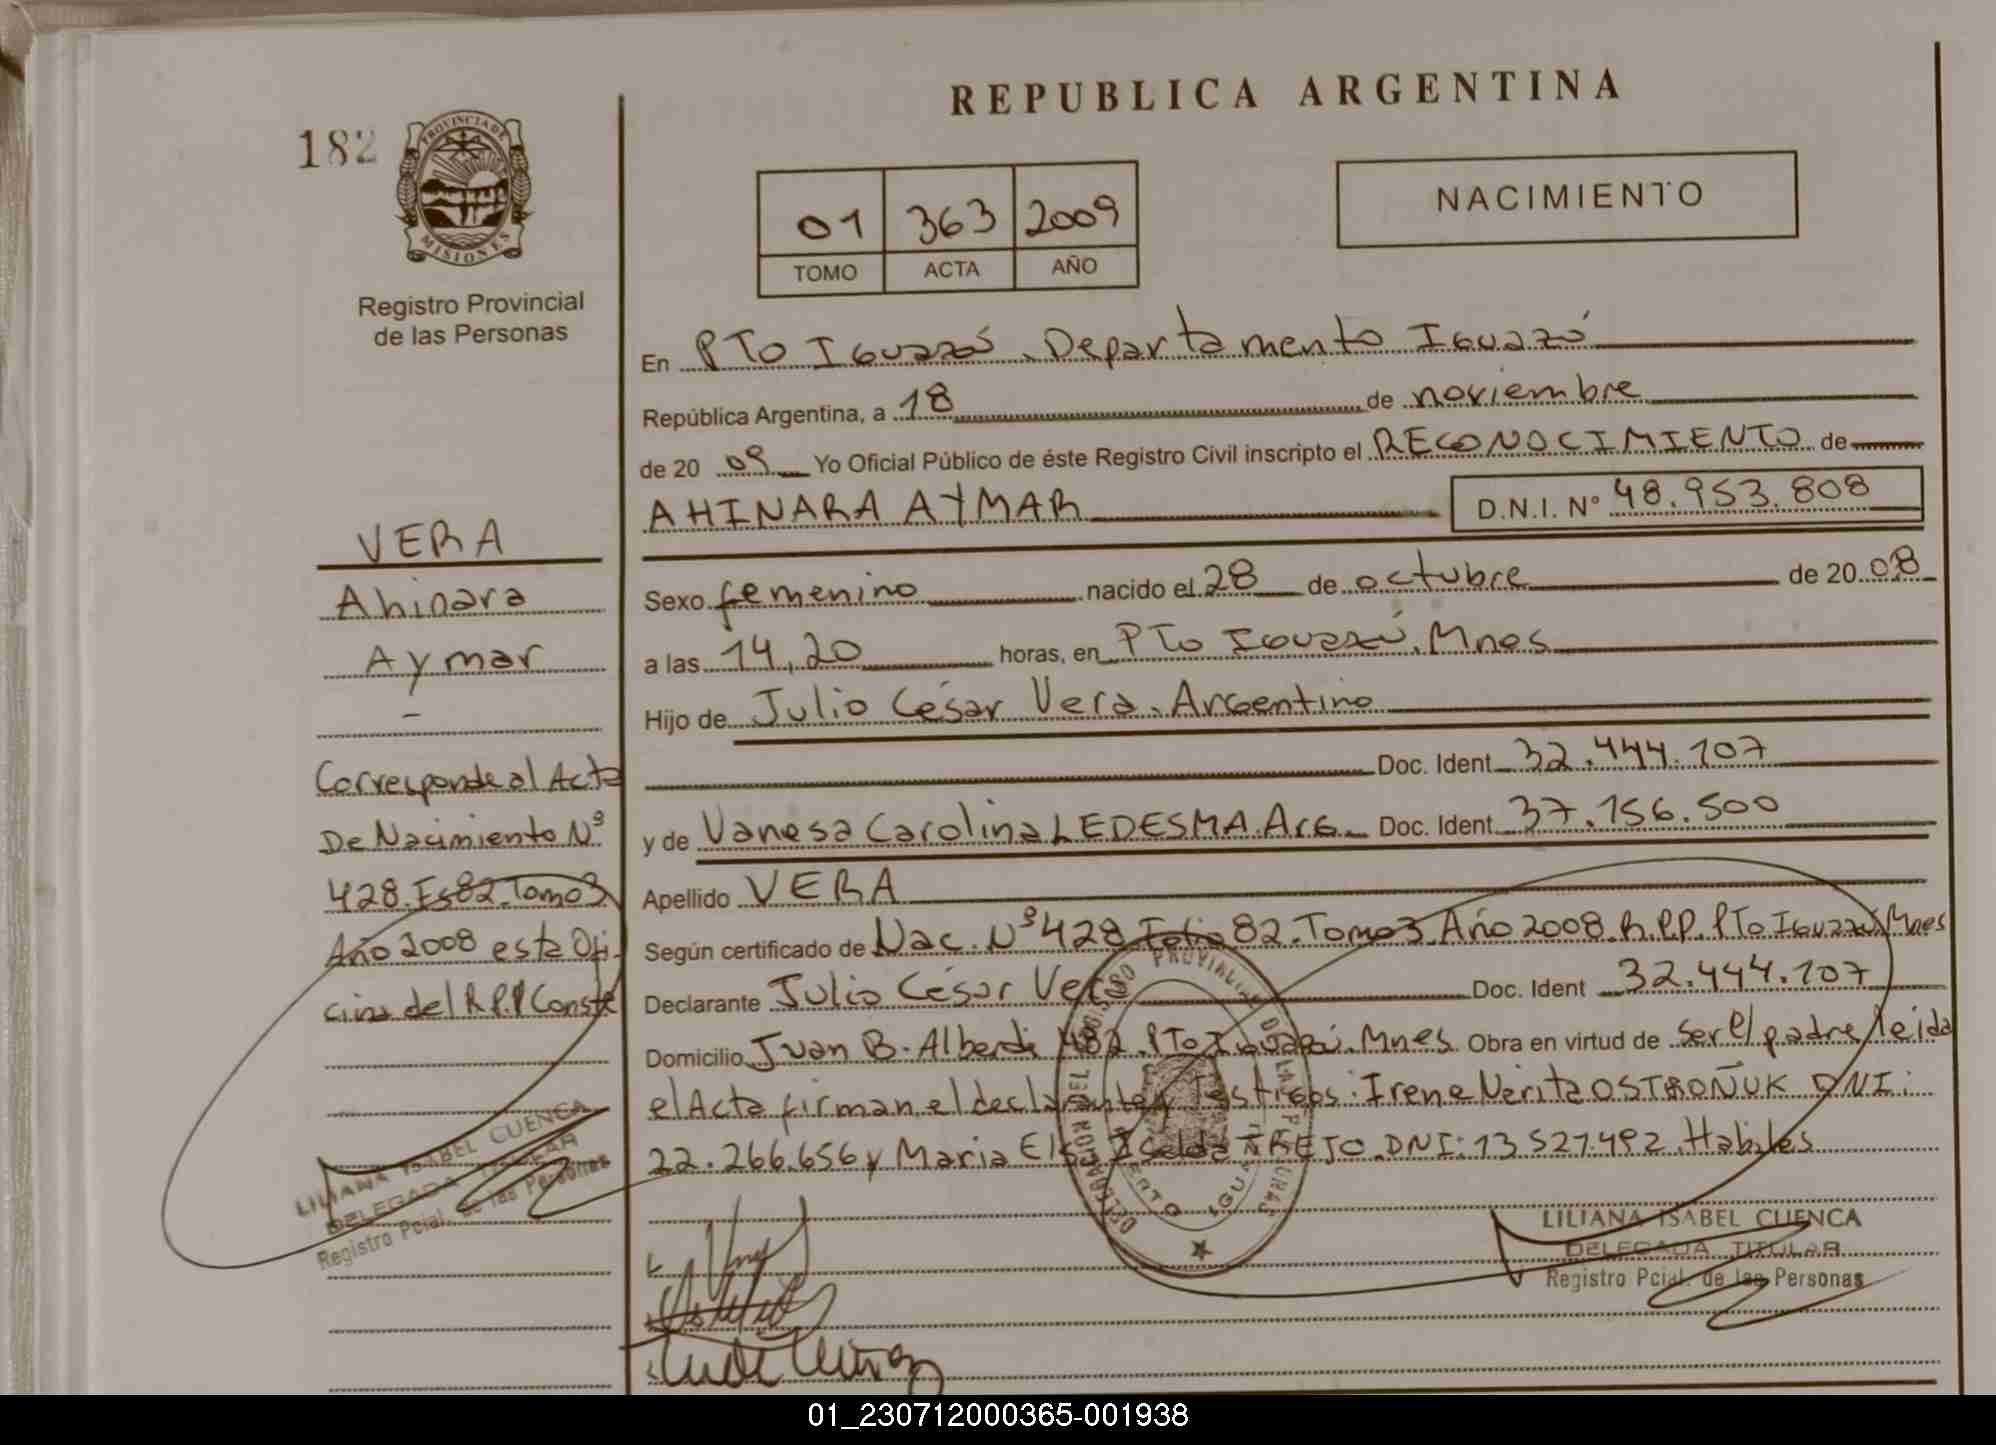 REPUBLICA ARGENTINA
182
PROVINCIA DE
MISIONES
Registro Provincial
de las Personas
01 363 2009
TOMO ACTA AÑO
NACIMIENTO
En Pto Iguazú. Departamento Iguazú
República Argentina, a 18 de noviembre
de 20 09 Yo Oficial Público de éste Registro Civil inscripto el RECONOCIMIENTO de
AHINARA AYMAR D.N.I. N° 48.953.808
Sexo femenino nacido el 28 de octubre de 20 08
a las 14,20 horas, en Pto Iguazú. Mnes
Hijo de Julio César Vera. Argentino
Doc. Ident 32.444.107
y de Vanesa Carolina LEDESMA. Arg. Doc. Ident 37.156.500
Apellido VERA
Según certificado de Nac. Nº 428 Folio 82. Tomo 3. Año 2008. R.P.P. Pto Iguazú Mnes
Declarante Julio César Vera Doc. Ident 32.444.107
Domicilio Juan B. Alberdi 482. Pto Iguazú. Mnes. Obra en virtud de ser el padre leida
el Acta firman el declarante y Testigos: Irene Nerita OSTROÑUK DNI:
22.266.656 y Maria Elsa TREJO. DNI: 13.527.492. Habiles
VERA
Ahinara
Aymar
Corresponde al Acta
De Nacimiento Nº
428. Fs 82. Tomo 3
Año 2008 esta Ofi-
cina del R.P.P Conste
LILIANA ISABEL CUENCA
DELEGADA TITULAR
Registro Pcial. de las Personas
LILIANA ISABEL CUENCA
DELEGADA TITULAR
Registro Pcial. de las Personas
01_230712000365-001938